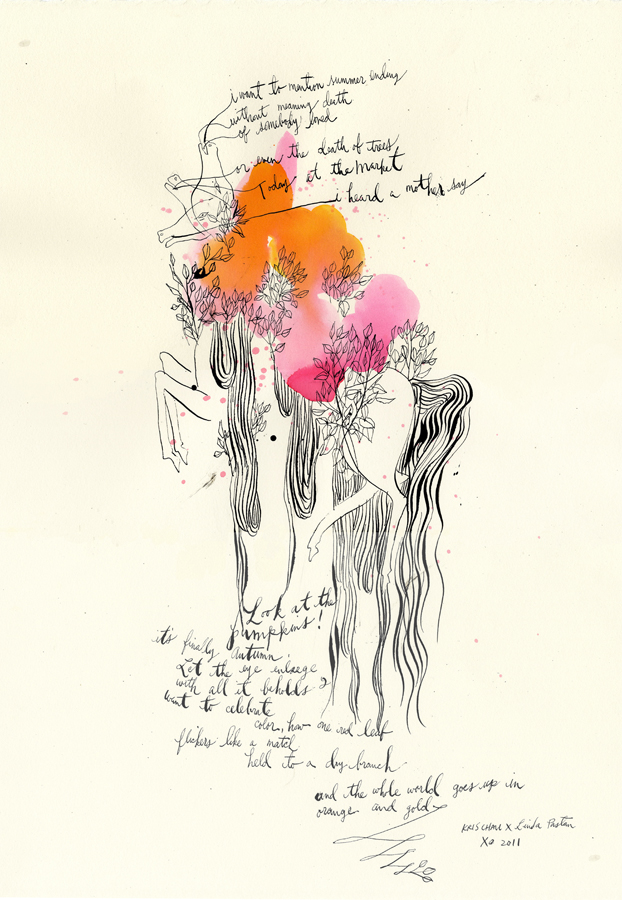 i want to mention summer ending
without meaning death
of somebody loved
or even the death of trees
Today at the market
i heard a mother say
Look at the
pumpkins!
it's finally autumn.
Let the eye enlarge
with all it beholds I
want to celebrate
color, how one red leaf
flickers like a match
held to a dry branch
and the whole world goes up in
orange and gold
KRISCHMI X Linda Pastan
XO 2011